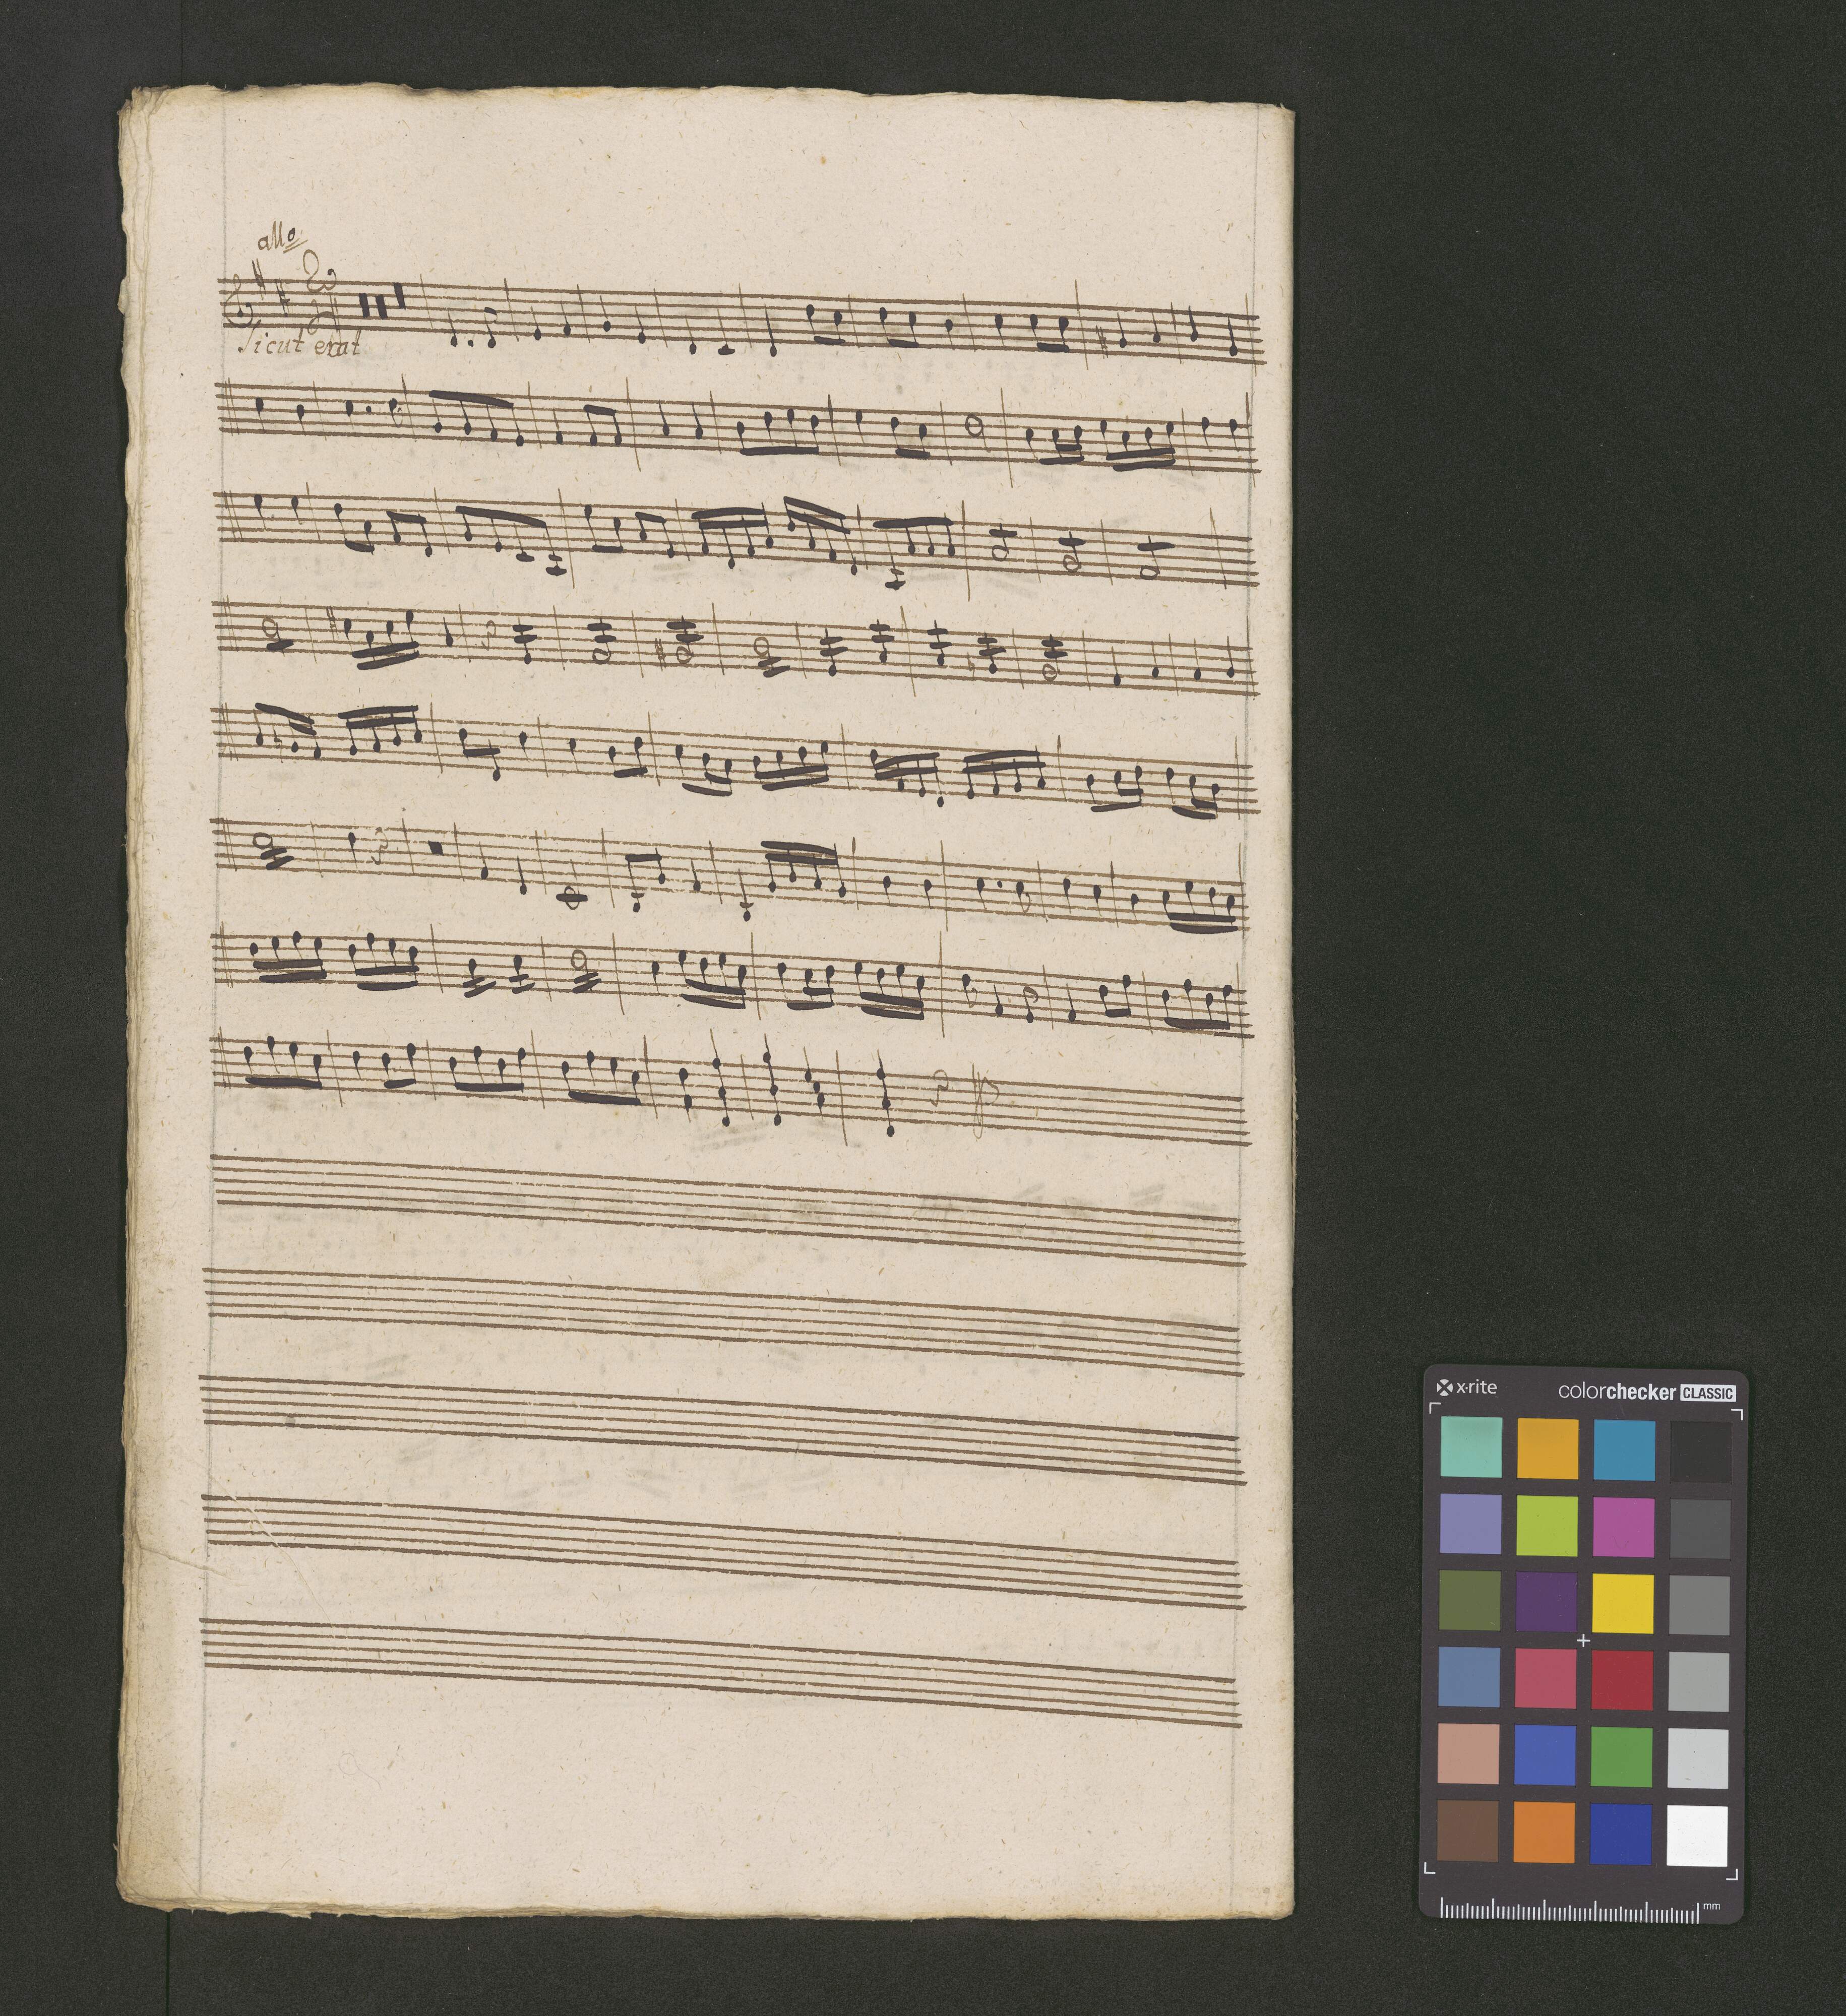 allo
Sicut erat
x-rite
colorchecker CLASSIC
mm